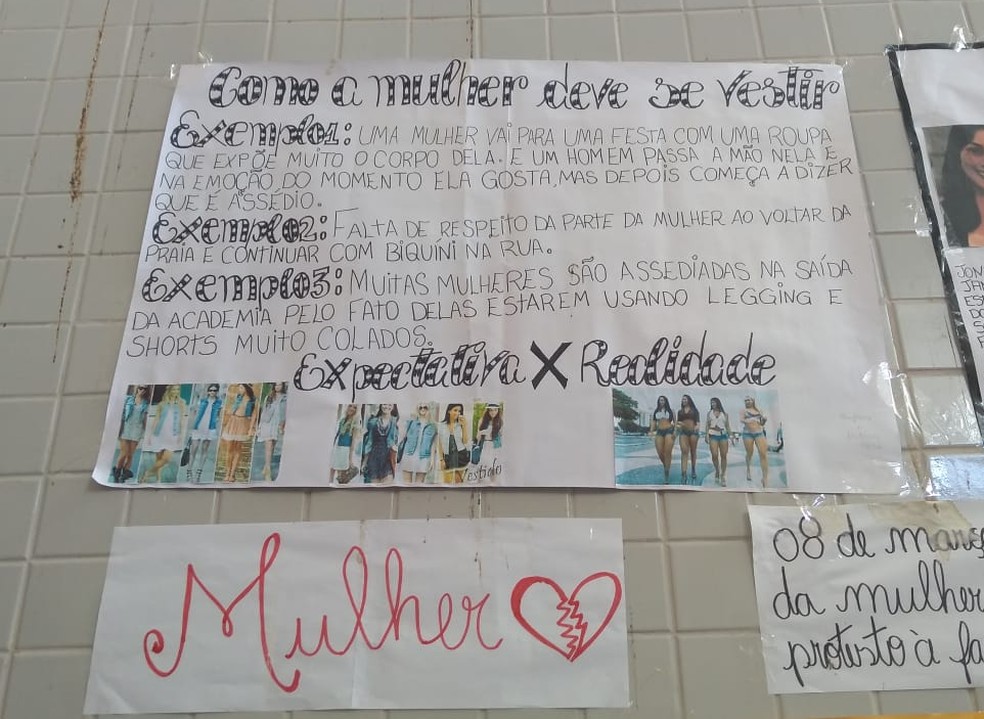 Como a mulher deve se vestir
Exemplo1: UMA MULHER VAI PARA UMA FESTA COM UMA ROUPA
QUE EXPÕE MUITO O CORPO DELA. E UM HOMEM PASSA A MÃO NELA E
NA EMOÇÃO DO MOMENTO ELA GOSTA, MAS DEPOIS COMEÇA A DIZER
QUE É ASSÉDIO.
Exemplo2: FALTA DE RESPEITO DA PARTE DA MULHER AO VOLTAR DA
PRAIA E CONTINUAR COM BIQUÍNI NA RUA.
Exemplo3: MUITAS MULHERES SÃO ASSEDIADAS NA SAÍDA
DA ACADEMIA PELO FATO DELAS ESTAREM USANDO LEGGING E
SHORTS MUITO COLADOS.
Expectativa X Realidade
Vestidos
Mulher
08 de març
da mulher
protesto à fa
JON
JAN
ES
DO
S